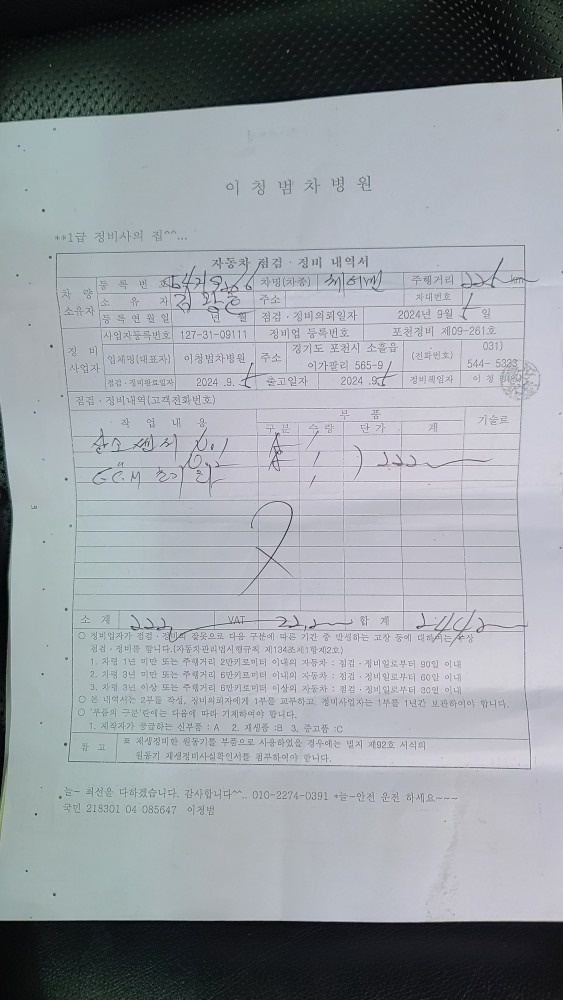 이 청 범 차 병 원
**1급 정비사의 집^^...
자동차 점검 · 정비 내역서
차량 소유자 등 록 번 호 차명(차종) 주행거리 226 km
소 유 자 주소 차대번호
등 록 연 월 일 년 월 점검 · 정비의뢰일자 2024년 9월 5 일
정 비 사업자 사업자등록번호 127-31-09111 정비업 등록번호 포천정비 제09-261호
업체명(대표자) 이청범차병원 주소 경기도 포천시 소흘읍 이가팔리 565-9 (전화번호) 031) 544- 5323
점검 · 정비완료일자 2024 .9. 5 출고일자 2024 .9. 5 정비책임자 이 청
점검 · 정비내역(고객전화번호)
작 업 내 용 부 품 기술료
구 분 수 량 단 가 계
산소센서 No.1 A 1
1 ) 222
ECM 1
소 계 222, VAT 22,2 합 계 244,2
○ 정비업자가 점검 · 정비의 잘못으로 다음 구분에 따른 기간 중 발생하는 고장 등에 대하여는 무상
점검 · 정비를 합니다.(자동차관리법시행규칙 제134조제1항제2호)
1. 차령 1년 미만 또는 주행거리 2만키로미터 이내의 자동차 : 점검 · 정비일로부터 90일 이내
2. 차령 3년 미만 또는 주행거리 6만키로미터 이내의 자동차 : 점검 · 정비일로부터 60일 이내
3. 차령 3년 이상 또는 주행거리 6만키로미터 이상의 자동차 : 점검 · 정비일로부터 30일 이내
○ 본 내역서는 2부를 작성, 정비의뢰자에게 1부를 교부하고 정비사업자는 1부를 1년간 보관하여야 합니다.
○ '부품의 구분'란에는 다음에 따라 기재하여야 합니다.
1. 제작자가 공급하는 신부품 : A 2. 재생품 :B 3. 중고품 :C
비 고 ※ 재생정비한 원동기를 부품으로 사용하였을 경우에는 별지 제92호 서식의
원동기 재생정비사실확인서를 첨부하여야 합니다.
늘~ 최선을 다하겠습니다. 감사합니다^^.. 010-2274-0391 *늘~안전 운전 하세요~~~
국민 218301 04 085647 이청범